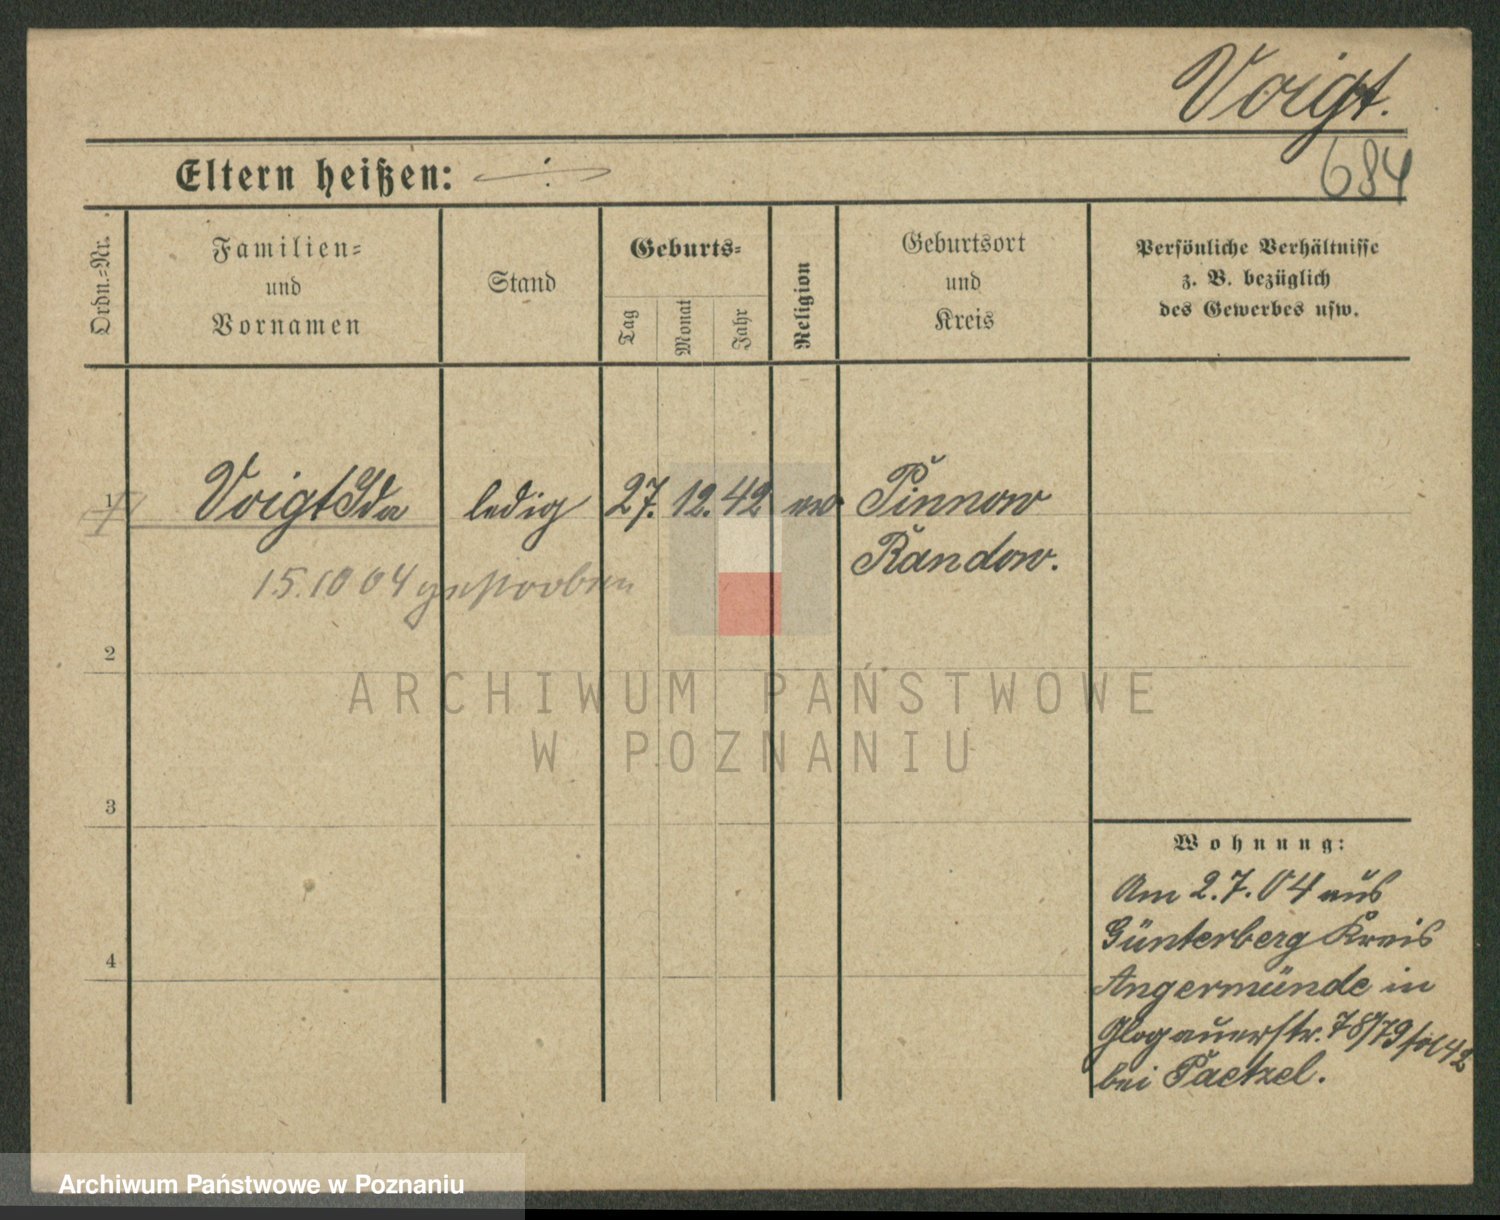 Voigt.
684
Eltern heißen: ÷
Ordn.=Nr.
Familien=
und
Vornamen
Stand
Geburts=
Tag
Monat
Jahr
Religion
Geburtsort
und
Kreis
Persönliche Verhältnisse
z. B. bezüglich
des Gewerbes usw.
1 Voigt Ida ledig 27. 12. 42 ev Pinnow
Randow.
15.10 04 gestorben
2
3
4
Wohnung:
Am 2.7.04 aus
Günterberg Kreis
Angermünde in
Glogauerstr. 78/79 fol 42
bei Paetzel.
ARCHIWUM PAŃSTWOWE
W POZNANIU
Archiwum Państwowe w Poznaniu